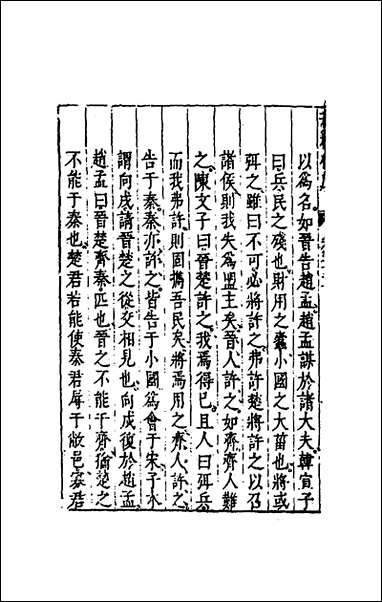 以為名如晉告趙孟趙孟謀於諸大夫韓宣子
曰兵民之殘也財用之蠹小國之大菑也將或
弭之雖曰不可必將許之弗許楚將許之以召
諸侯則我失為盟主矣晉人許之如齊齊人難
之陳文子曰晉楚許之我焉得已且人曰弭兵
而我弗許則固攜吾民矣將焉用之齊人許之
告于秦秦亦許之皆告于小國為會于宋子木
謂向戌請晉楚之從交相見也向戌復於趙孟
趙孟曰晉楚齊秦匹也晉之不能于齊猶楚之
不能于秦也楚君若能使秦君辱于敝邑寡君